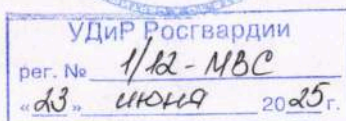 УДиР Росгвардии
рег. № 1/12-МВС
«23» июня 2025г.